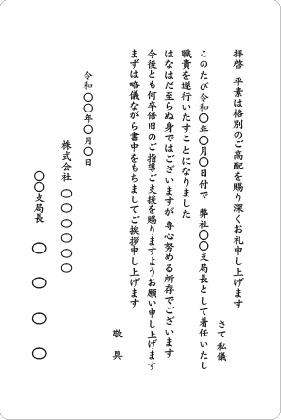 拝啓 平素は格別のご高配を賜り深くお礼申し上げます
さて私儀
このたび令和〇年〇月〇日付で 弊社〇〇支局長として着任いたし
職責を遂行いたすことになりました
はなはだ至らぬ身ではございますが 専心努める所存でございます
今後とも何卒倍旧のご指導ご支援を賜りますようお願い申し上げます
まずは略儀ながら書中をもちましてご挨拶申し上げます
敬具
令和〇〇年〇月〇日
株式会社 〇〇〇〇〇〇
〇〇支局長 〇〇〇〇